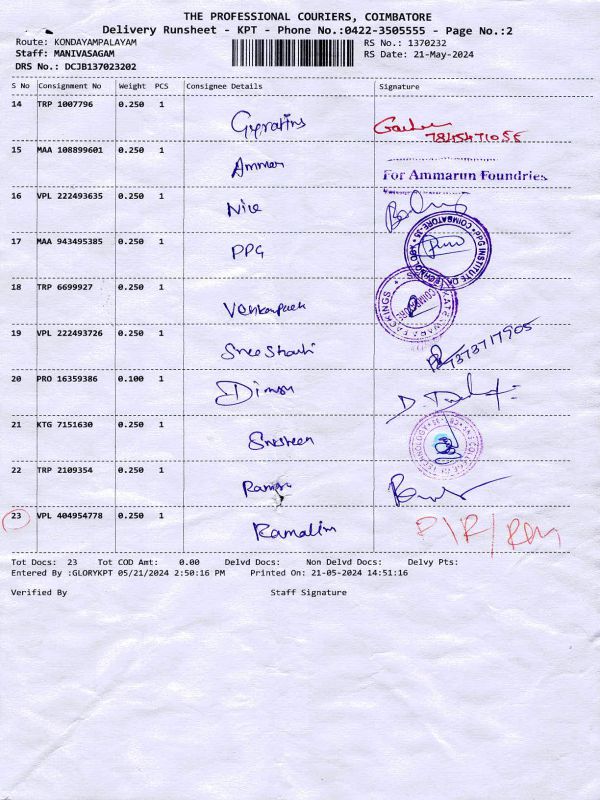 THE PROFESSIONAL COURIERS, COIMBATORE
Delivery Runsheet - KPT - Phone No.:0422-3505555 - Page No.:2
Route: KONDAYAMPALAYAM RS No.: 1370232
Staff: MANIVASAGAM RS Date: 21-May-2024
DRS No.: DCJB137023202
S No Consignment No Weight PCS Consignee Details Signature
14 TRP 1007796 0.250 1
15 MAA 108899601 0.250 1 Ammar For Ammarun Foundries
16 VPL 222493635 0.250 1 Nice
17 MAA 943495385 0.250 1 PPG
18 TRP 6699927 0.250 1
19 VPL 222493726 0.250 1 7373717905
20 PRO 16359386 0.100 1
21 KTG 7151630 0.250 1
22 TRP 2109354 0.250 1
23 VPL 404954778 0.250 1 Ramalim
Tot Docs: 23 Tot COD Amt: 0.00 Delvd Docs: Non Delvd Docs: Delvy Pts:
Entered By :GLORYKPT 05/21/2024 2:50:16 PM Printed On: 21-05-2024 14:51:16
Verified By Staff Signature